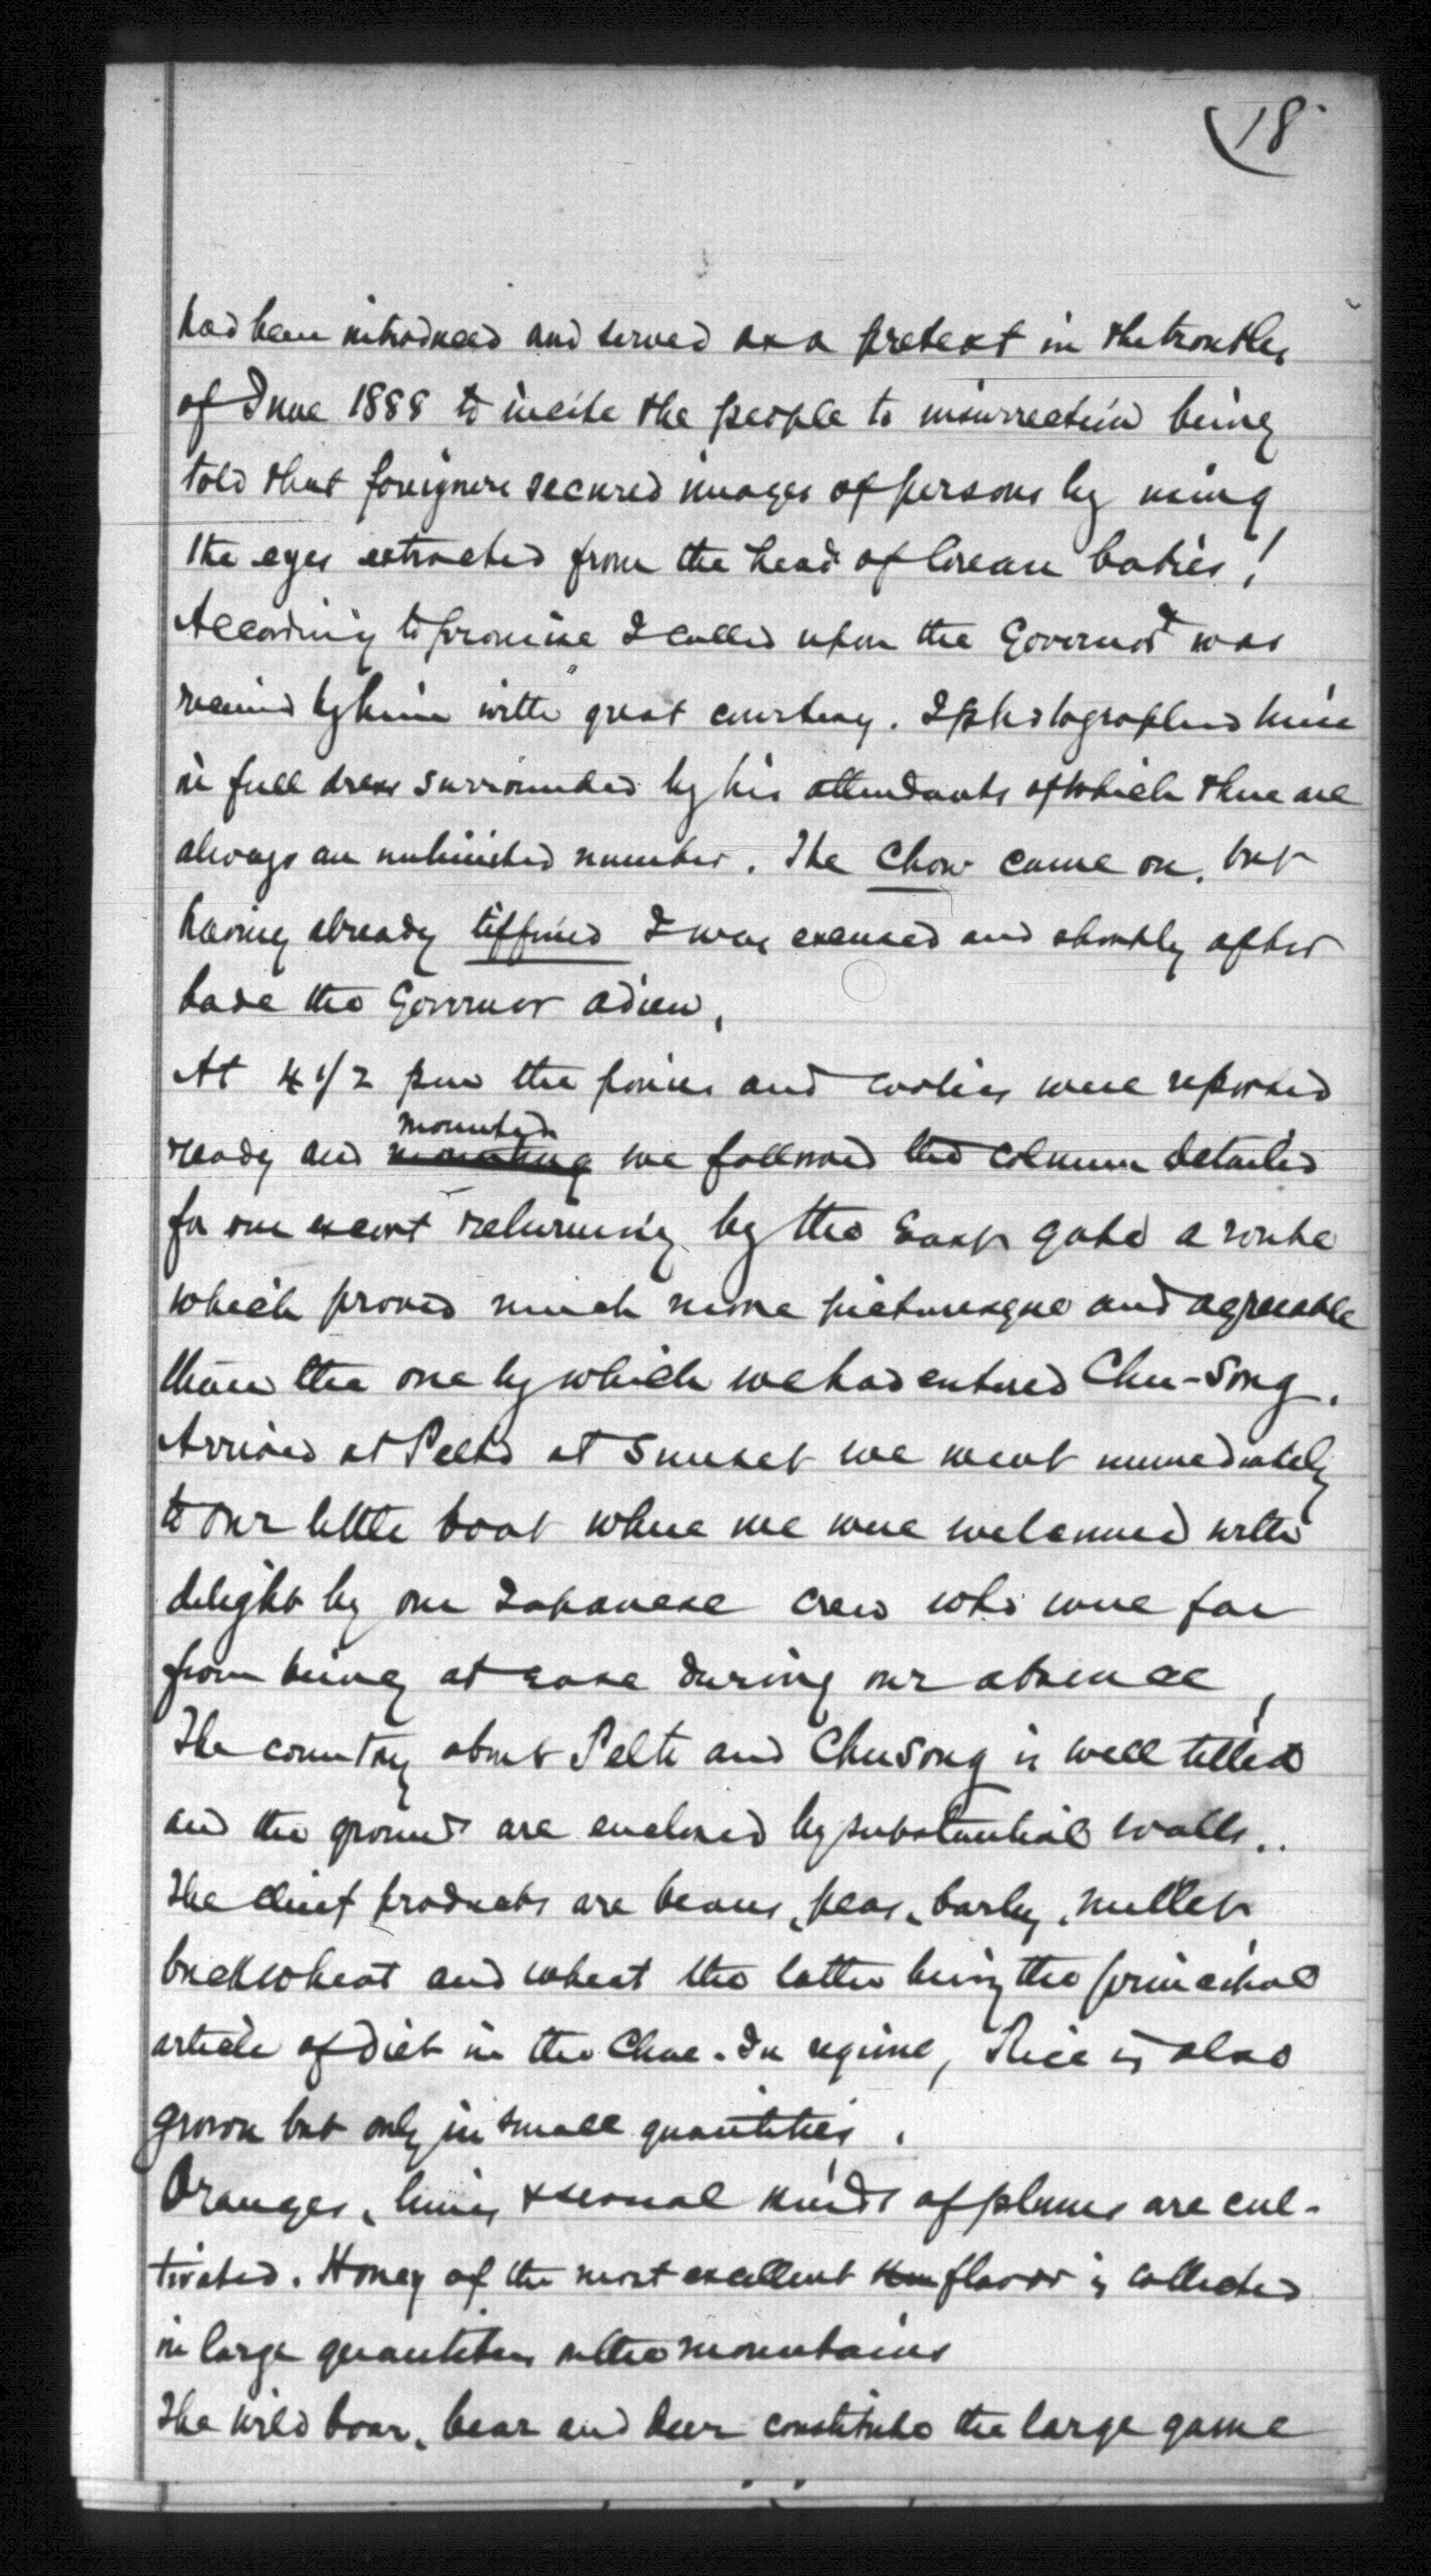 18
had been introduced and served as a pretext in the troubles
of June 1888 to incite the people to insurrection being
told that foreigners secured images of persons by using
the eyes extracted from the head of Corean babies!
According to promise I called upon the Governor & was
received by him with great courtesy. I photographed him
in full dress surrounded by his attendants of which there are
always an unlimited number. The Chow came on, but
having already tiffined I was excused and shortly after
bade the Governor adieu,
At 4 1/2 pm the ponies and coolies were reported
ready and mounting mounted we followed the column detailed
for our escort returning by the East gate a route
which proved much more picturesque and agreeable
than the one by which we had entered Chu-Song.
Arrived at Pelto at sunset we went immediately
to our little boat where we were welcomed with
delight by our Japanese crew who were far
from being at ease during our absence,
The country about Pelto and ChuSong is well tilled
and the grounds are enclosed by substantial walls..
The chief products are beans, peas, barley, millet,
buckwheat and wheat the latter being the principal
article of diet in the Chae-Ju regime, Rice is also
grown but only in small quantities.
Oranges, limes & several kinds of plums are cul-
tivated. Honey of the most excellent flavor is collected
in large quantities in the mountains
The wild boar, bear and deer constitute the large game